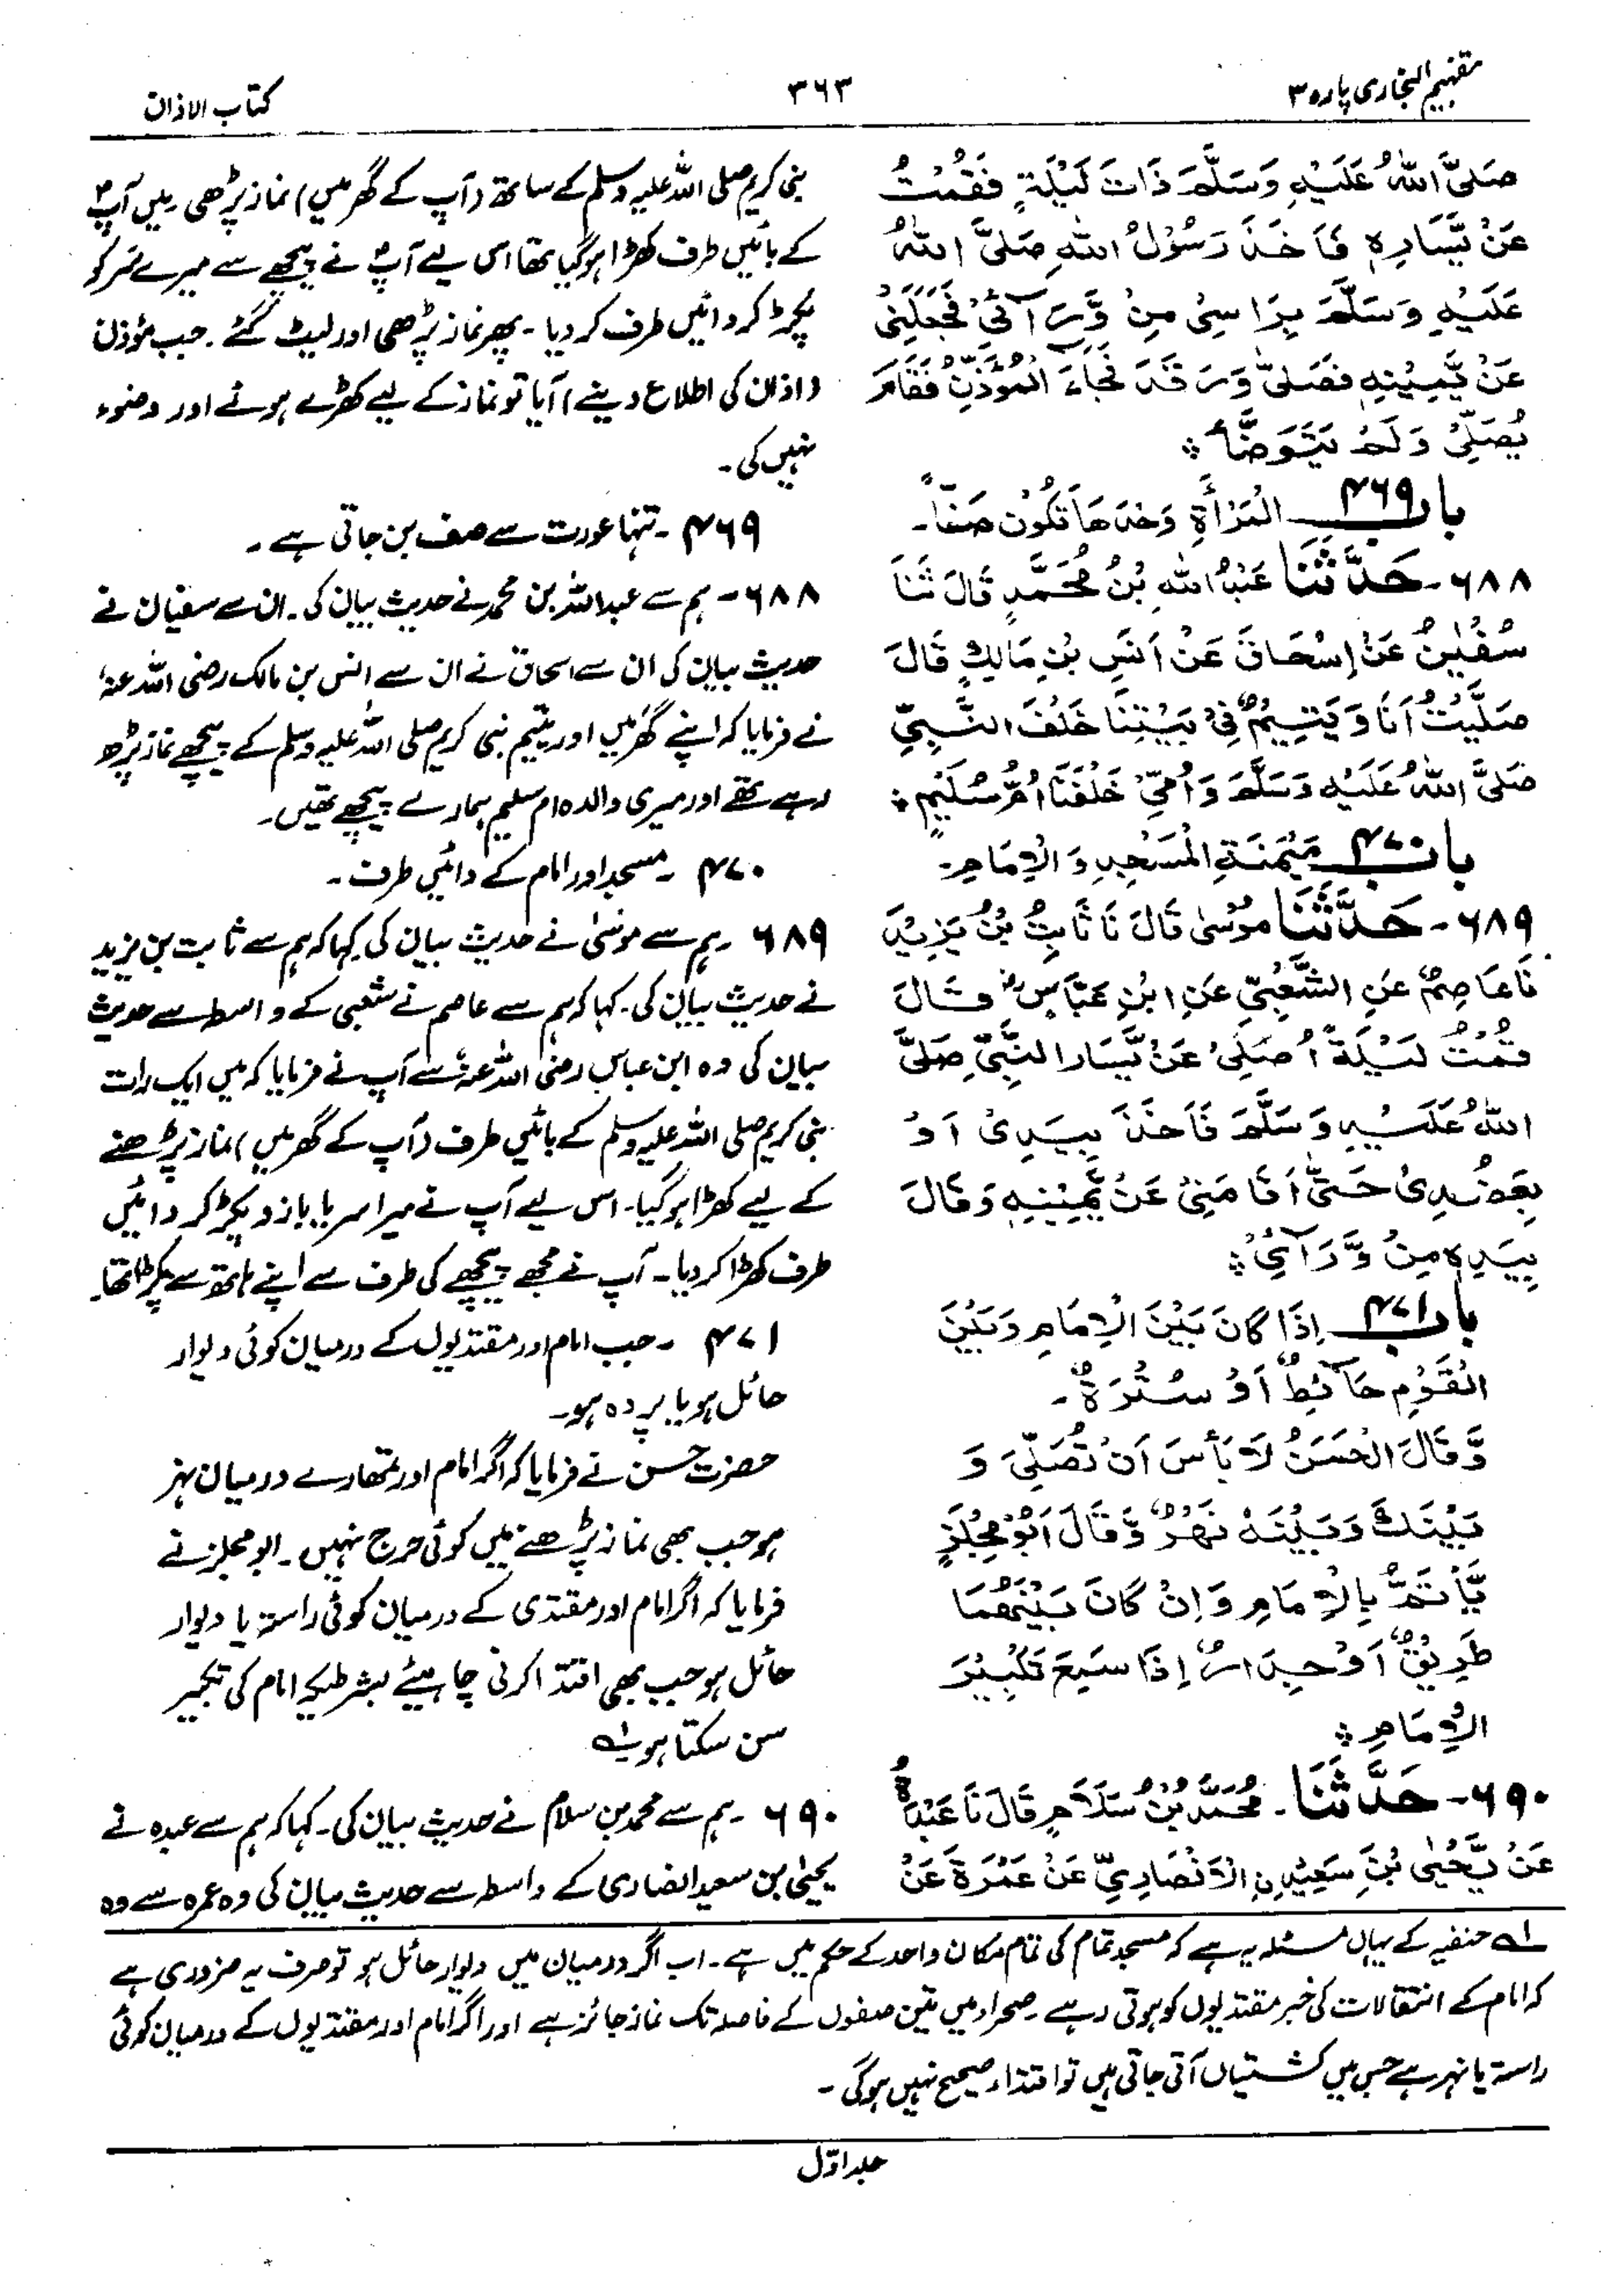 تفہیم البخاری پارہ ۳
۳۶۳
کتاب الاذان
صَلَّى اللّٰهُ عَلَيْهِ وَسَلَّمَ ذَاتَ لَيْلَةٍ فَقُمْتُ
عَنْ يَّسَارِهٖ فَاَخَذَ رَسُوْلُ اللّٰهِ صَلَّى اللّٰهُ
عَلَيْهِ وَسَلَّمَ بِرَاسِىْ مِنْ وَّرَآئِىْ فَجَعَلَنِىْ
عَنْ يَّمِيْنِهٖ فَصَلّٰى وَرَقَدَ فَجَاءَ الْمُؤَذِّنُ فَقَامَ
يُصَلِّىْ وَلَمْ يَتَوَضَّأْ
باب ۴۶۹ الْمَرْأَةِ وَحْدَهَا تَكُوْنُ صَفًّا۔
۶۸۸۔ حَدَّثَنَا عَبْدُ اللّٰهِ بْنُ مُحَمَّدٍ قَالَ ثَنَا
سُفْيٰنُ عَنْ اِسْحَاقَ عَنْ اَنَسِ بْنِ مَالِكٍ قَالَ
صَلَّيْتُ اَنَا وَيَتِيْمٌ فِىْ بَيْتِنَا خَلْفَ النَّبِىِّ
صَلَّى اللّٰهُ عَلَيْهِ وَسَلَّمَ وَاُمِّىْ خَلْفَنَا اُمُّ سُلَيْمٍ
باب ۴۷۰ مَيْمَنَةِ الْمَسْجِدِ وَالْاِمَامِ۔
۶۸۹۔ حَدَّثَنَا مُوْسٰى قَالَ نَا ثَابِتُ بْنُ يَزِيْدَ
نَا عَاصِمٌ عَنِ الشَّعْبِىِّ عَنِ ابْنِ عَبَّاسٍ رض قَالَ
قُمْتُ لَيْلَةً اُصَلِّىْ عَنْ يَّسَارِ النَّبِىِّ صَلَّى
اللّٰهُ عَلَيْهِ وَسَلَّمَ فَاَخَذَ بِيَدِىْ اَوْ
بِعَضُدِىْ حَتّٰى اَقَامَنِىْ عَنْ يَّمِيْنِهٖ وَقَالَ
بِيَدِهٖ مِنْ وَّرَآئِىْ
باب ۴۷۱ اِذَا كَانَ بَيْنَ الْاِمَامِ وَبَيْنَ
الْقَوْمِ حَآئِطٌ اَوْ سُتْرَةٌ۔
وَّقَالَ الْحَسَنُ لَا بَأْسَ اَنْ تُصَلِّىَ وَ
بَيْنَكَ وَبَيْنَهٗ نَهْرٌ وَّقَالَ اَبُوْ مِجْلَزٍ
يَّأْتَمُّ بِالْاِمَامِ وَاِنْ كَانَ بَيْنَهُمَا
طَرِيْقٌ اَوْ جِدَارٌ اِذَا سَمِعَ تَكْبِيْرَ
الْاِمَامِ
۶۹۰۔ حَدَّثَنَا۔ مُحَمَّدُ بْنُ سَلَامٍ قَالَ نَا عَبْدَةُ
عَنْ يَّحْيٰى بْنِ سَعِيْدِنِ الْاَنْصَارِىِّ عَنْ عَمْرَةَ عَنْ
نبی کریم صلی اللہ علیہ وسلم کے ساتھ (آپ کے گھر میں) نماز پڑھی میں آپؐ
کے بائیں طرف کھڑا ہو گیا تھا اس لیے آپؐ نے پیچھے سے میرے سر کو
پکڑ کر دائیں طرف کر دیا ۔ پھر نماز پڑھی اور لیٹ گئے ۔ جب مؤذن
(اذان کی اطلاع دینے) آیا تو نماز کے لیے کھڑے ہوئے اور وضوء
نہیں کی ۔
۴۶۹ ۔ تنہا عورت سے صف بن جاتی ہے ۔
۶۸۸ ۔ ہم سے عبداللہ بن محمد نے حدیث بیان کی ۔ ان سے سفیان نے
حدیث بیان کی ان سے اسحاق نے ان سے انس بن مالک رضی اللہ عنہ
نے فرمایا کہ اپنے گھر میں اور یتیم نبی کریم صلی اللہ علیہ وسلم کے پیچھے نماز پڑھ
رہے تھے اور میری والدہ ام سلیم ہمارے پیچھے تھیں ۔
۴۷۰ ۔ مسجد اور امام کے دائیں طرف ۔
۶۸۹ ۔ ہم سے موسیٰ نے حدیث بیان کی کہا کہ ہم سے ثابت بن یزید
نے حدیث بیان کی ۔ کہا کہ ہم سے عاصم نے شعبی کے واسطہ سے حدیث
بیان کی وہ ابن عباس رضی اللہ عنہ سے آپ نے فرمایا کہ میں ایک رات
نبی کریم صلی اللہ علیہ وسلم کے بائیں طرف (آپ کے گھر میں) نماز پڑھنے
کے لیے کھڑا ہو گیا ۔ اس لیے آپ نے میرا سر یا بازو پکڑ کر دائیں
طرف کھڑا کر دیا ۔ آپ نے مجھے پیچھے کی طرف سے اپنے ہاتھ سے پکڑا تھا۔
۴۷۱ ۔ جب امام اور مقتدیوں کے درمیان کوئی دیوار
حائل ہو یا پردہ ہو ۔
حضرت حسن نے فرمایا کہ اگر امام اور تمھارے درمیان نہر
ہو جب بھی نماز پڑھنے میں کوئی حرج نہیں ۔ ابو مجلز نے
فرمایا کہ اگر امام اور مقتدی کے درمیان کوئی راستہ یا دیوار
حائل ہو جب بھی اقتدا کرنی چاہیئے بشرطیکہ امام کی تکبیر
سن سکتا ہو ۱؎
۶۹۰ ۔ ہم سے محمد بن سلام نے حدیث بیان کی ۔ کہا کہ ہم سے عبدہ نے
یحییٰ بن سعید انصاری کے واسطہ سے حدیث بیان کی وہ عمرہ سے وہ
۱؎ حنفیہ کے یہاں مسئلہ یہ ہے کہ مسجد تمام کی تمام مکان واحد کے حکم میں ہے ۔ اب اگر درمیان میں دیوار حائل ہو تو صرف یہ ضروری ہے
کہ امام کے انتقالات کی خبر مقتدیوں کو ہوتی رہے ۔ صحراء میں تین صفوں کے فاصلہ تک نماز جائز ہے اور اگر امام اور مقتدیوں کے درمیان کوئی
راستہ یا نہر ہے جس میں کشتیاں آتی جاتی ہیں تو اقتداء صحیح نہیں ہوگی ۔
جلد اوّل